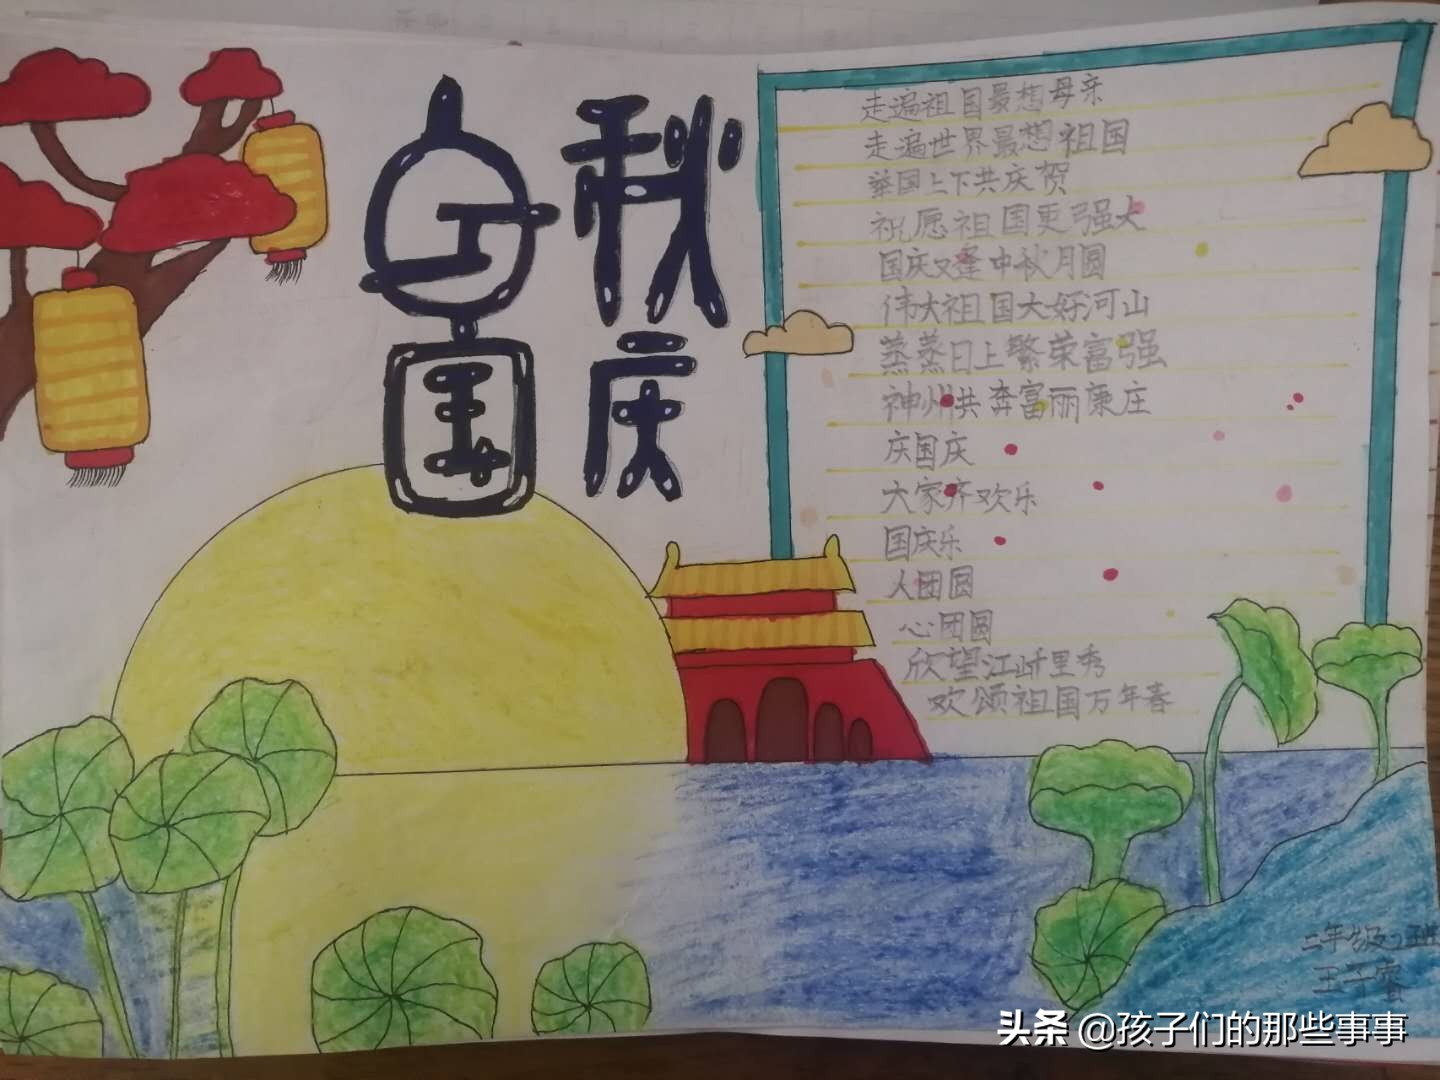 中秋
国庆
走遍祖国最想母亲
走遍世界最想祖国
举国上下共庆贺
祝愿祖国更强大
国庆又逢中秋月圆
伟大祖国大好河山
蒸蒸日上繁荣富强
神州共奔富丽康庄
庆国庆
大家齐欢乐
国庆乐
人团圆
心团圆
欣望江山千里秀
欢颂祖国万年春
二年级2班
王子
头条 @孩子们的那些事事